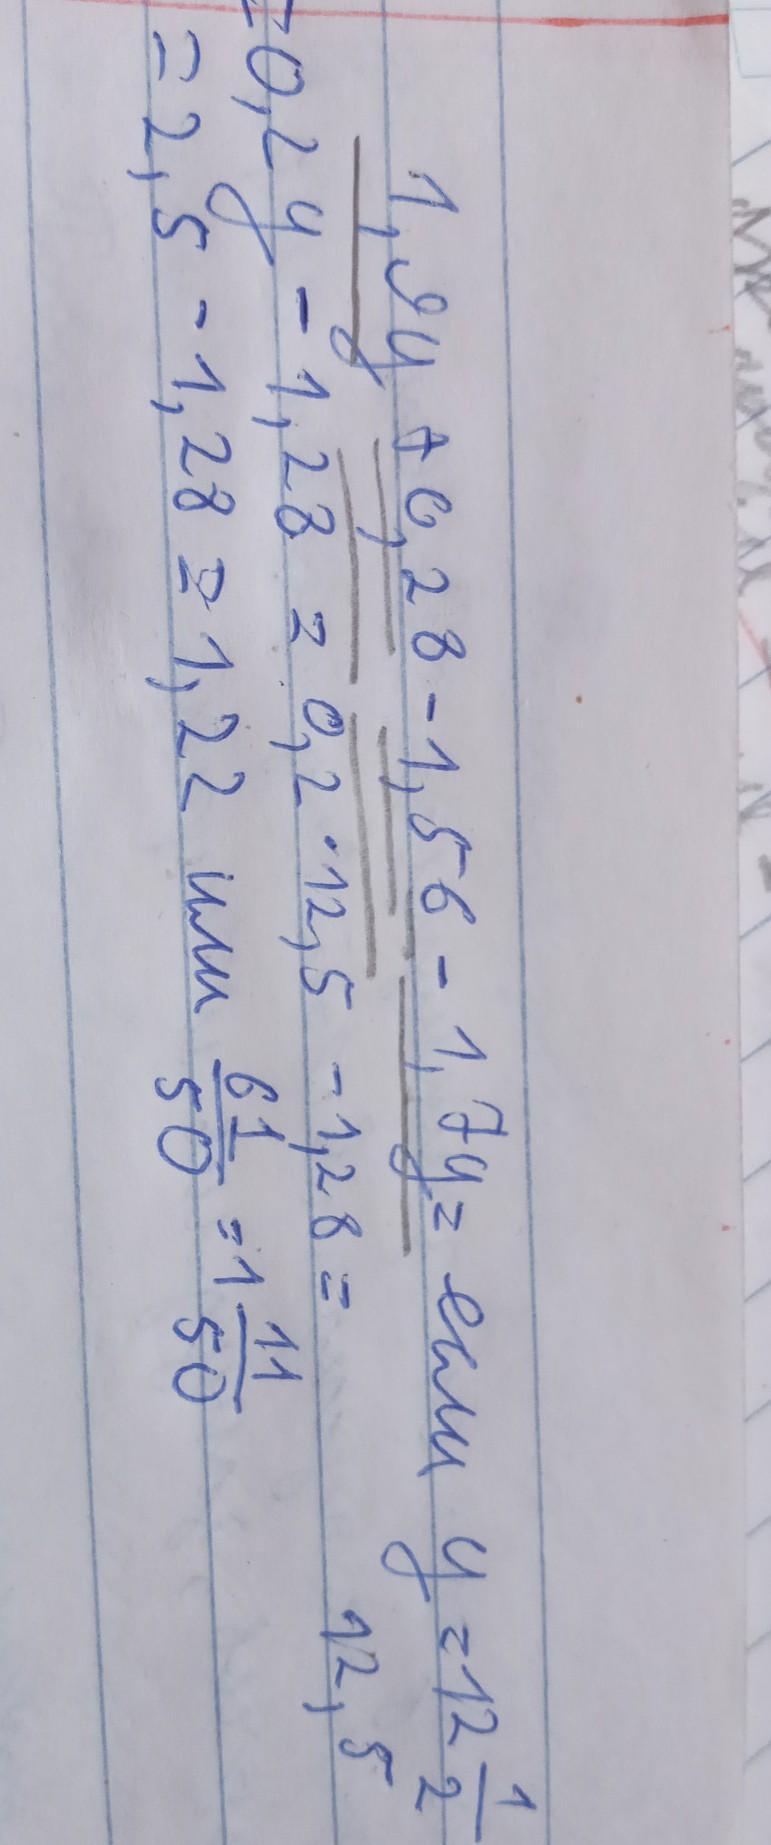 1,9y + 0,28 - 1,56 - 1,7y = если y = 12 1/2
12,5
= 0,2y - 1,28 = 0,2 · 12,5 - 1,28 =
= 2,5 - 1,28 = 1,22 или 61/50 = 1 11/50